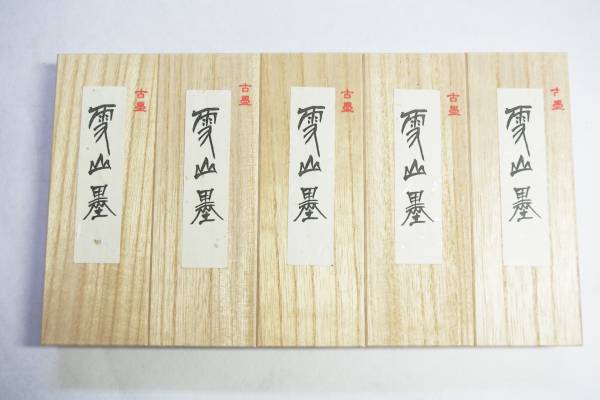 古墨
雪山墨
古墨
雪山墨
古墨
雪山墨
古墨
雪山墨
古墨
雪山墨